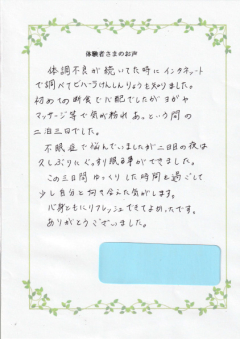 体験者さまのお声
体調不良が続いてた時にインターネット
で調べてビハーラけんしんりょうを知りました。
初めての断食で心配でしたがヨガや
マッサージ等で気が紛れあっという間の
二泊三日でした。
不眠症で悩んでいましたが二日目の夜は
久しぶりにぐっすり眠る事ができました。
この三日間ゆっくりした時間を過ごして
少し自分と向き合えた気がします。
心身ともにリフレッシュできてよかったです。
ありがとうございました。